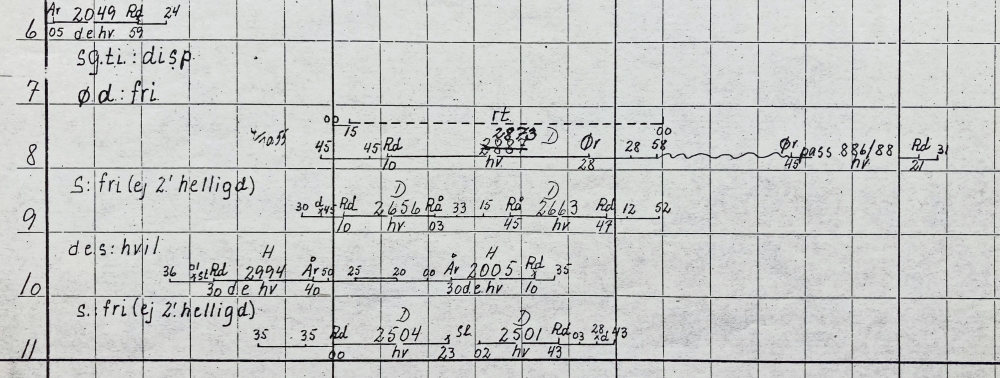 Ar 2049 Rd 24
6 05 de hv 59
sg.ti: disp
7 ød: fri
00 rt 00
15 2873 D
45 45 Rd Ør 28 58 Ør pass 886/88 Rd 31
8 10 hv 28 45 hv 21
s: fri (ej 2' helligd)
D D
30 d 45 Rd 2656 Rå 33 15 Rå 2663 Rd 12 52
9 10 hv 03 45 hv 47
des: hvil
H H
36 01 st Rd 2994 År 50 25 20 00 År 2005 Rd 35
10 30 de hv 40 30 de hv 10
s: fri (ej 2' helligd)
D D
35 35 Rd 2504 Sl 2501 Rd 03 28 d 43
11 00 hv 23 02 hv 43